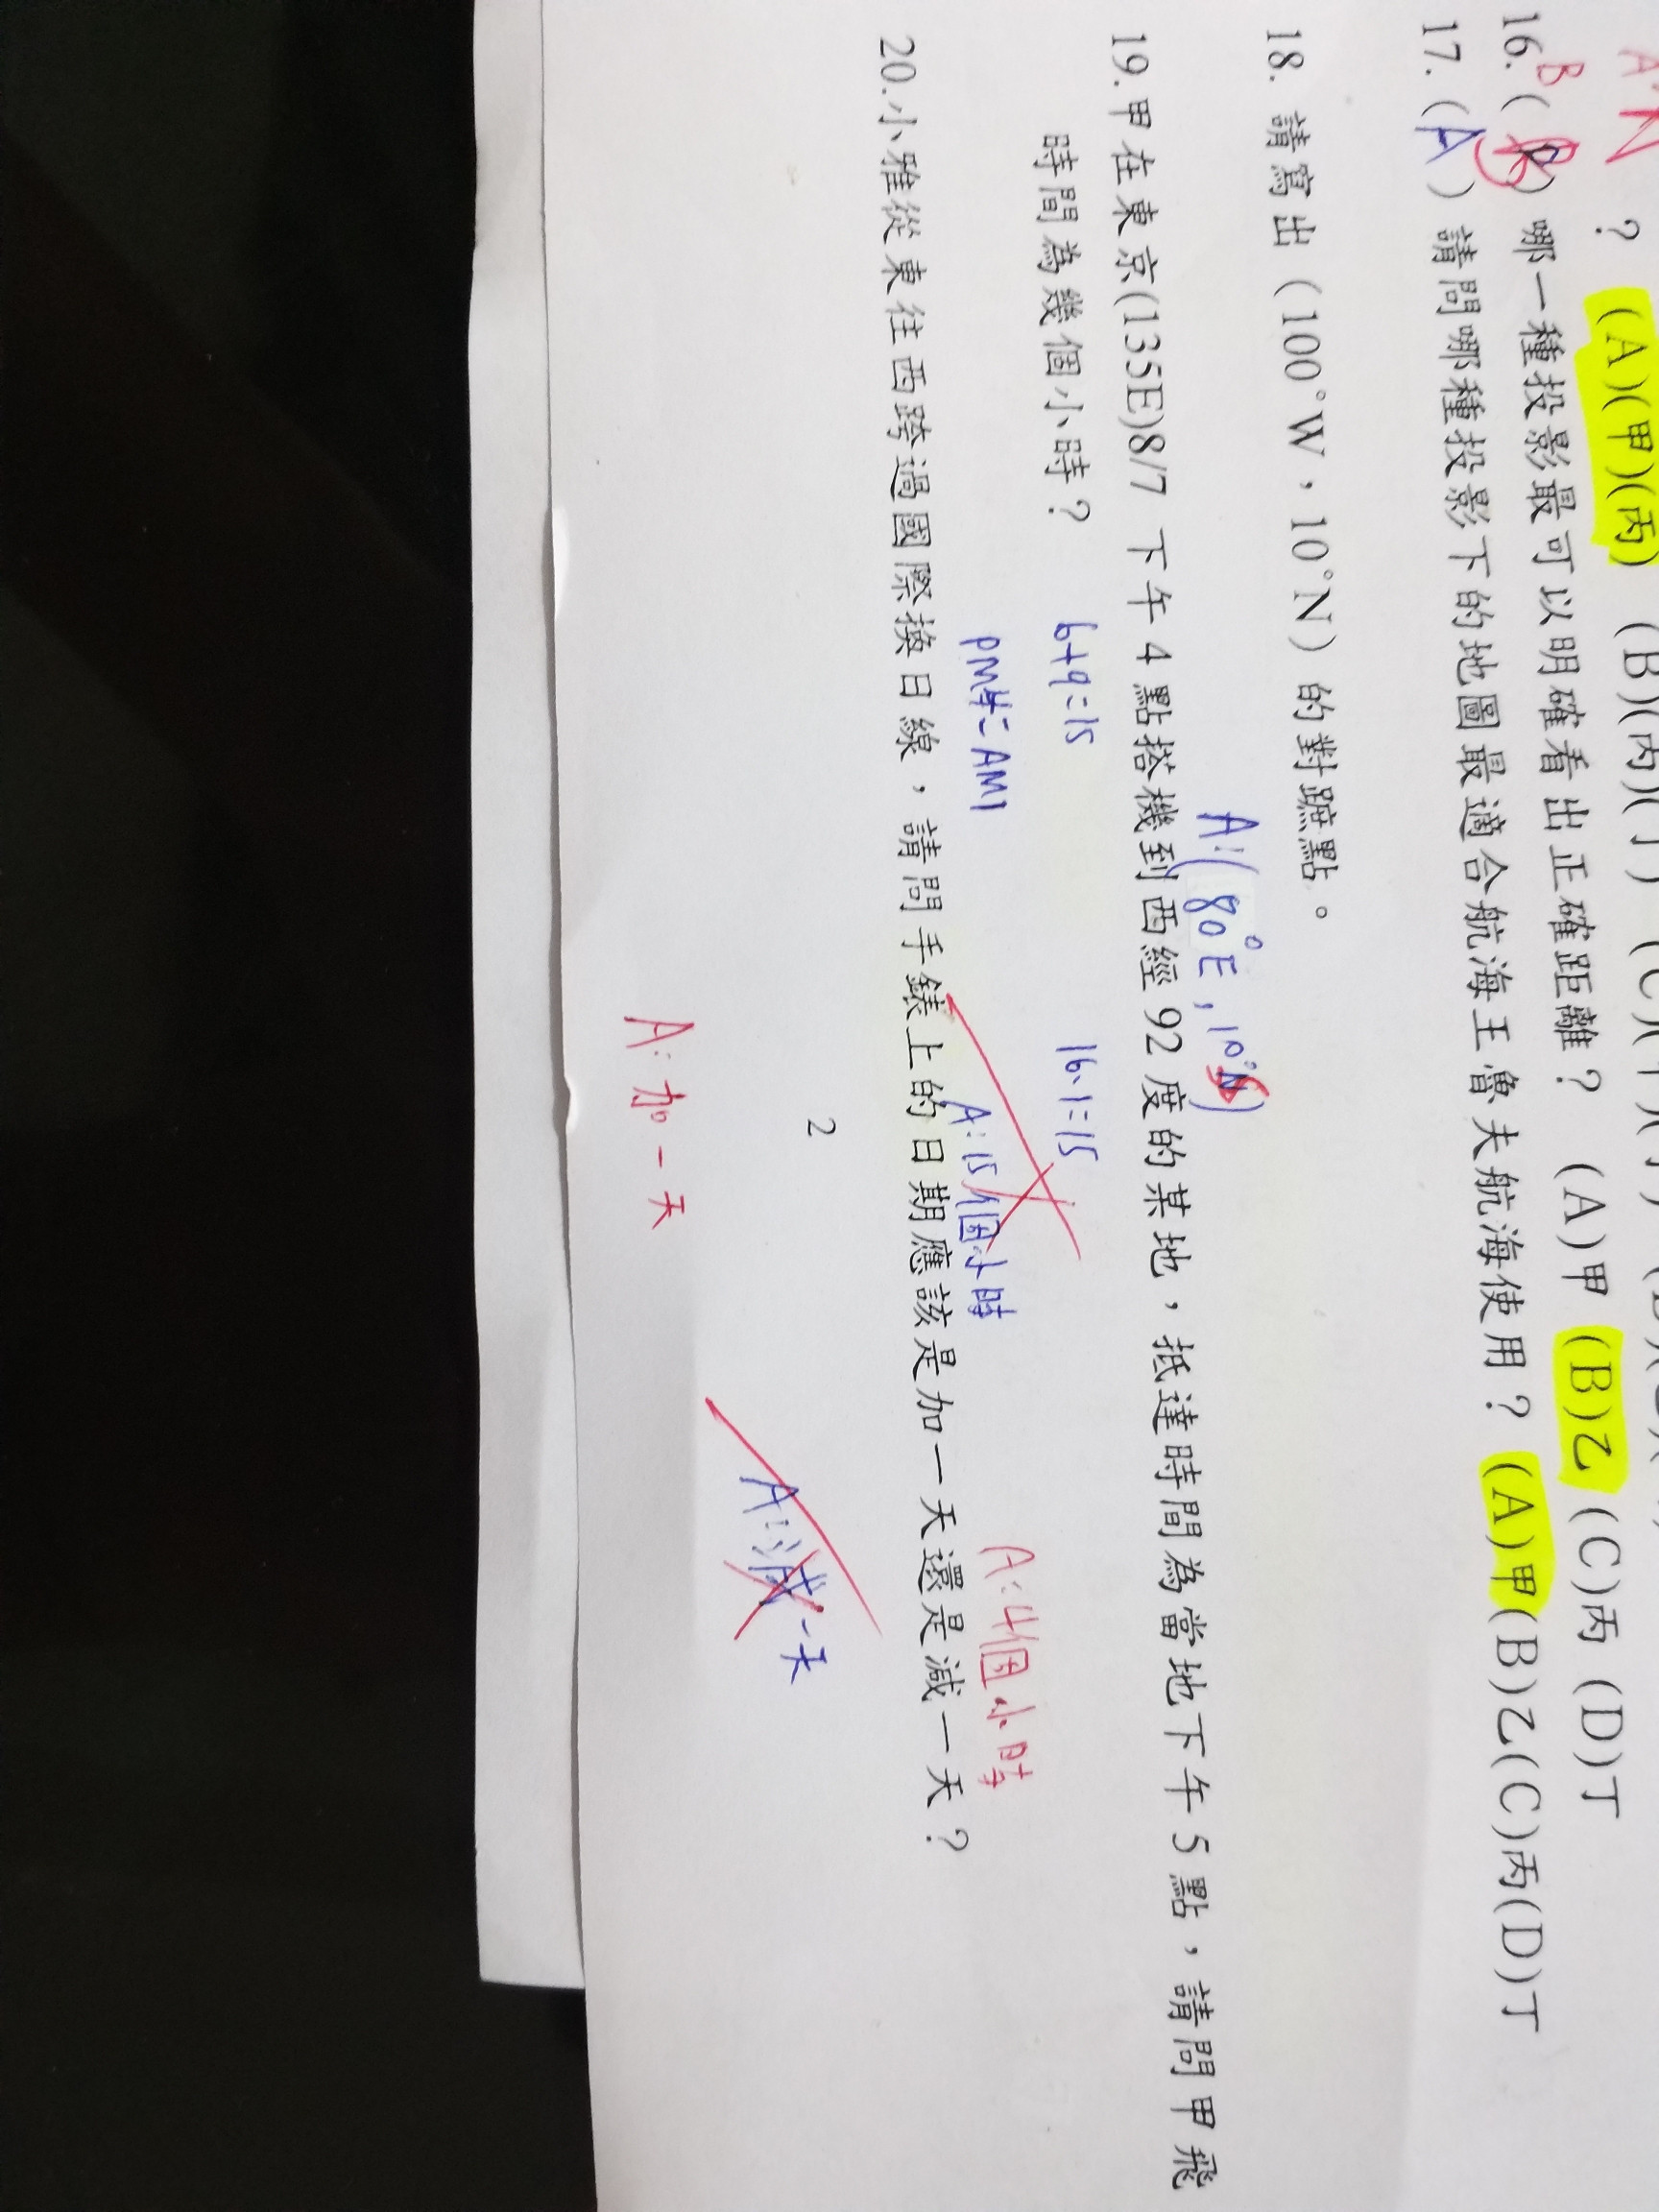 ? (A)(甲)(丙) (B)(丙)(丁)
16. B ( B ) 哪一種投影最可以明確看出正確距離? (A)甲 (B)乙 (C)丙 (D)丁
17. (A) 請問哪種投影下的地圖最適合航海王魯夫航海使用? (A)甲(B)乙(C)丙(D)丁
18. 請寫出(100°W,10°N)的對蹠點。
A:(80°E,10°S)
19.甲在東京(135E)8/7 下午 4 點搭機到西經 92 度的某地,抵達時間為當地下午 5 點,請問甲飛
時間為幾個小時?
6+9=15
16-1=15
PM4=AM1
A:15個小時
A:4個小時
20.小雅從東往西跨過國際換日線,請問手錶上的日期應該是加一天還是減一天?
A:減一天
2
A:加一天